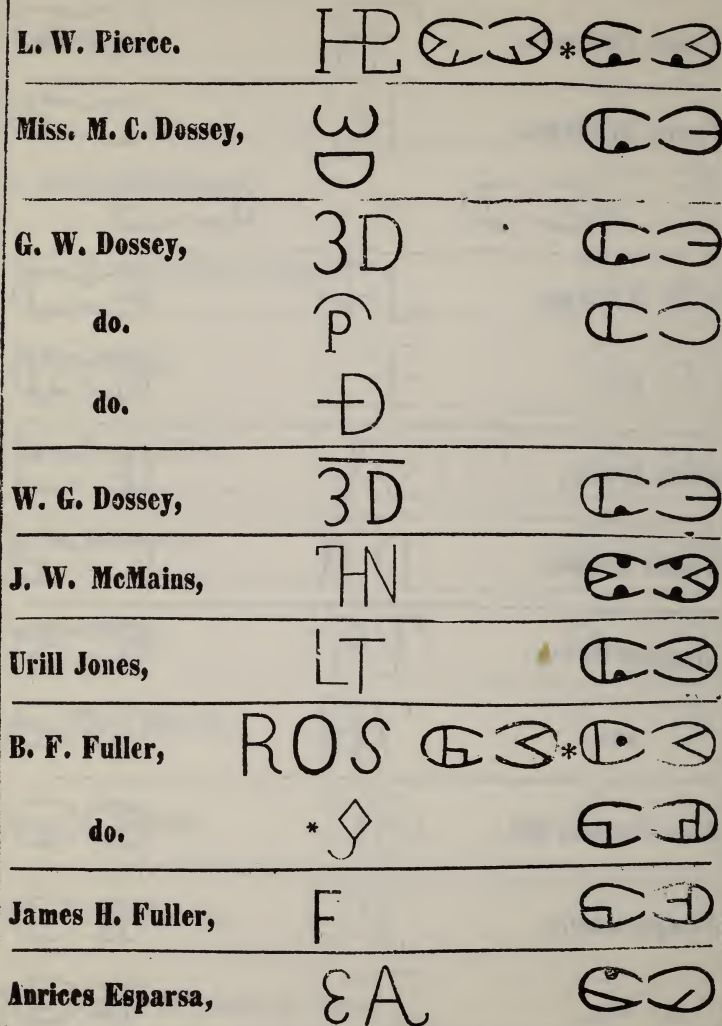 L. W. Pierce. HPL * 
Miss. M. C. Dossey, 3 D
G. W. Dossey, 3D
do. P
do. D
W. G. Dossey, 3D
J. W. McMains, 7HN
Urill Jones, LT
B. F. Fuller, ROS *
do. *
James H. Fuller, F
Anrices Esparsa, ƐA